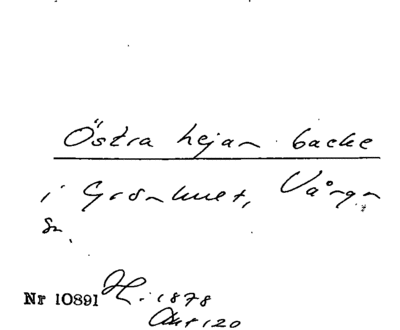 Östra hejan backe
i Grönhult, Vånga
sn.
Nr 10891 H. 1878
Aut 120